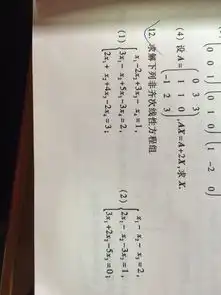 (0 0 1) (0 1 0) (1 -2 0)
(4) 设 A = ( 0 3 3
1 1 0
-1 2 3 ), AX=A+2X, 求 X.
12. 求解下列非齐次线性方程组
(1) { x₁-2x₂+3x₃-x₄=1,
3x₁-x₂+5x₃-3x₄=2,
2x₁+x₂+4x₃-2x₄=3;
(2) { x₁-x₂-x₃=2,
2x₁-x₂-3x₃=1,
3x₁+2x₂-5x₃=0;